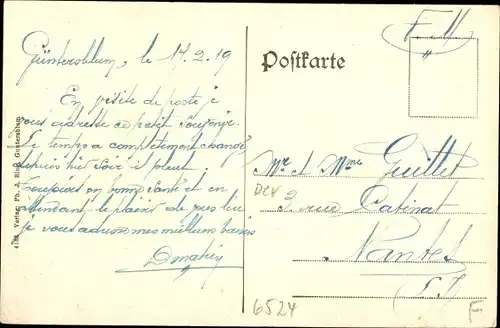 Güntersblum, le 17.2.19
En visite de poste je
vous adresse ce petit souvenir.
Le temps a complètement changé
depuis hier soir il pleut.
Toujours en bonne santé et en
attendant le plaisir de vous lire
je vous adresse mes meilleurs baisers
Postkarte
F. M
"
Mr et Mme Guillet
3 rue Catinat
Nantes
L. I
6524
F
4188 Verlag: Ph. J. Guntersblum